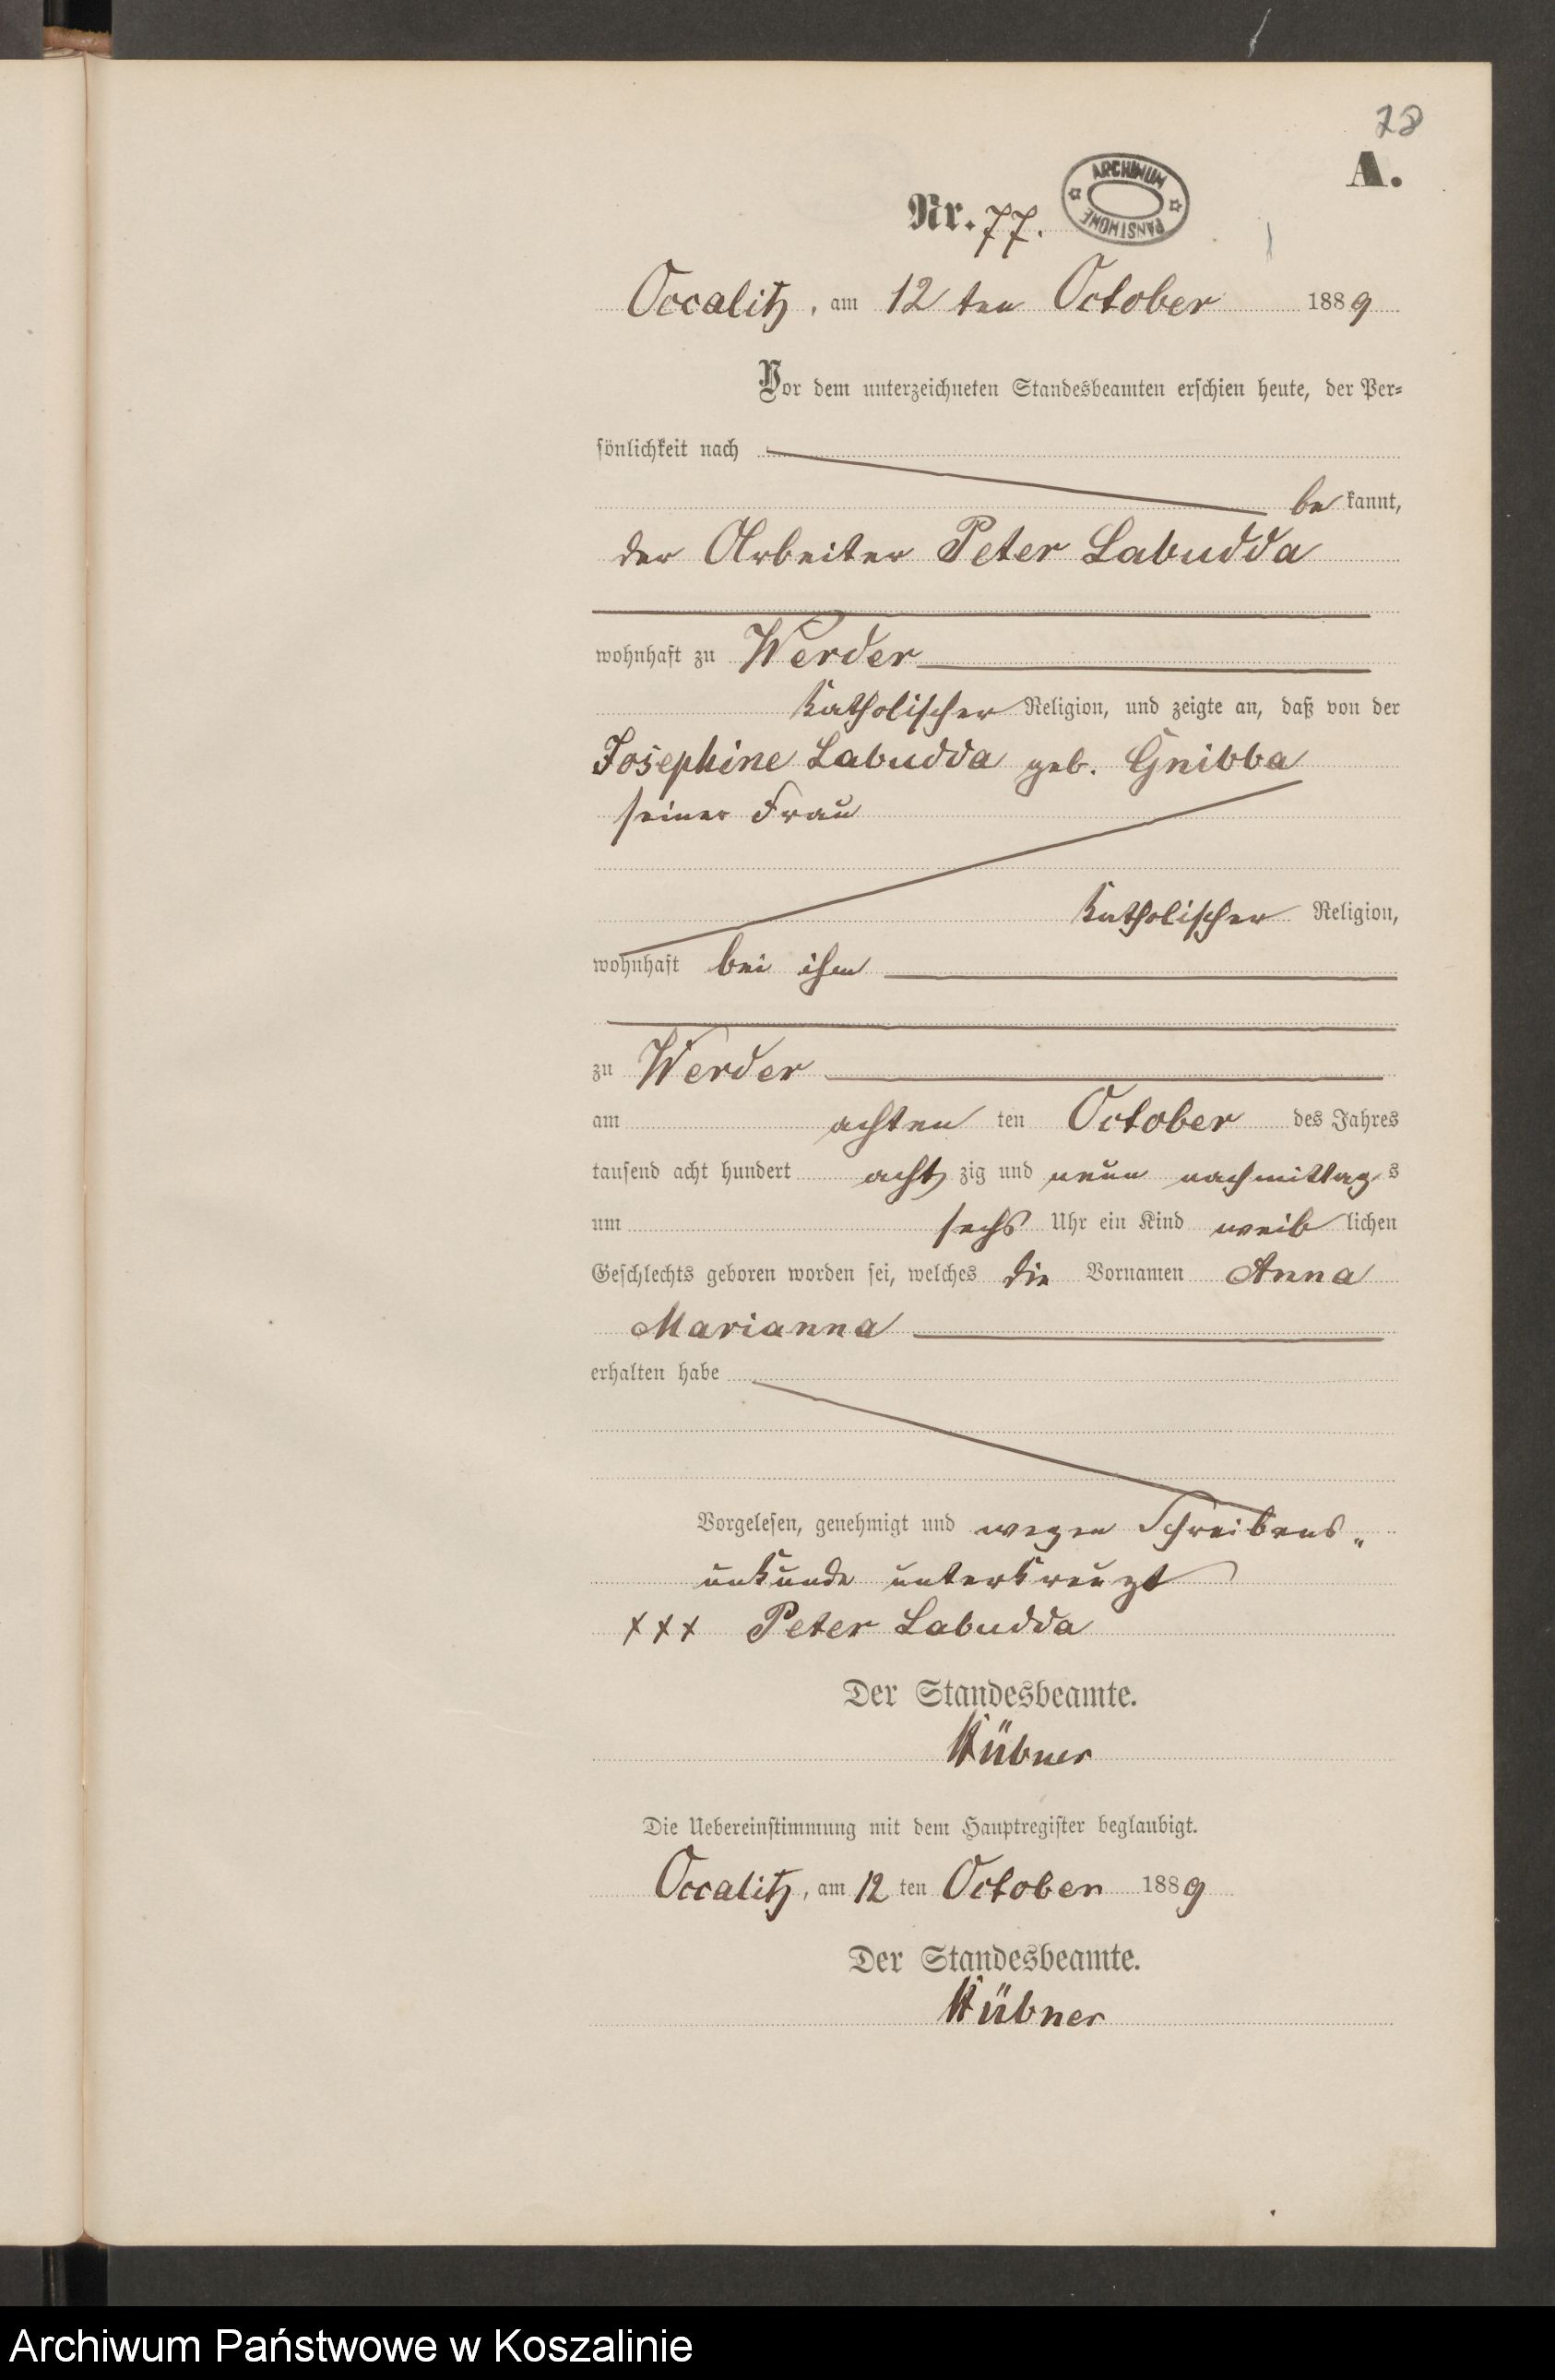 78
A.
Nr. 77.
ARCHIWUM PAŃSTWOWE
Occalitz, am 12 ten October 1889
Vor dem unterzeichneten Standesbeamten erschien heute, der Per=
sönlichkeit nach
be kannt,
der Arbeiter Peter Labudda
wohnhaft zu Werder
katholischer Religion, und zeigte an, daß von der
Josephine Labudda geb. Gnibba
seiner Frau
katholischer Religion,
wohnhaft bei ihm
zu Werder
am achten ten October des Jahres
tausend acht hundert acht zig und neun nachmittag s
um sechs Uhr ein Kind weib lichen
Geschlechts geboren worden sei, welches die Vornamen Anna
Marianna
erhalten habe
Vorgelesen, genehmigt und wegen Schreibens„
unkunde unterkreuzt
xxx Peter Labudda
Der Standesbeamte.
Hübner
Die Uebereinstimmung mit dem Hauptregister beglaubigt.
Occalitz, am 12 ten October 1889
Der Standesbeamte.
Hübner
Archiwum Państwowe w Koszalinie